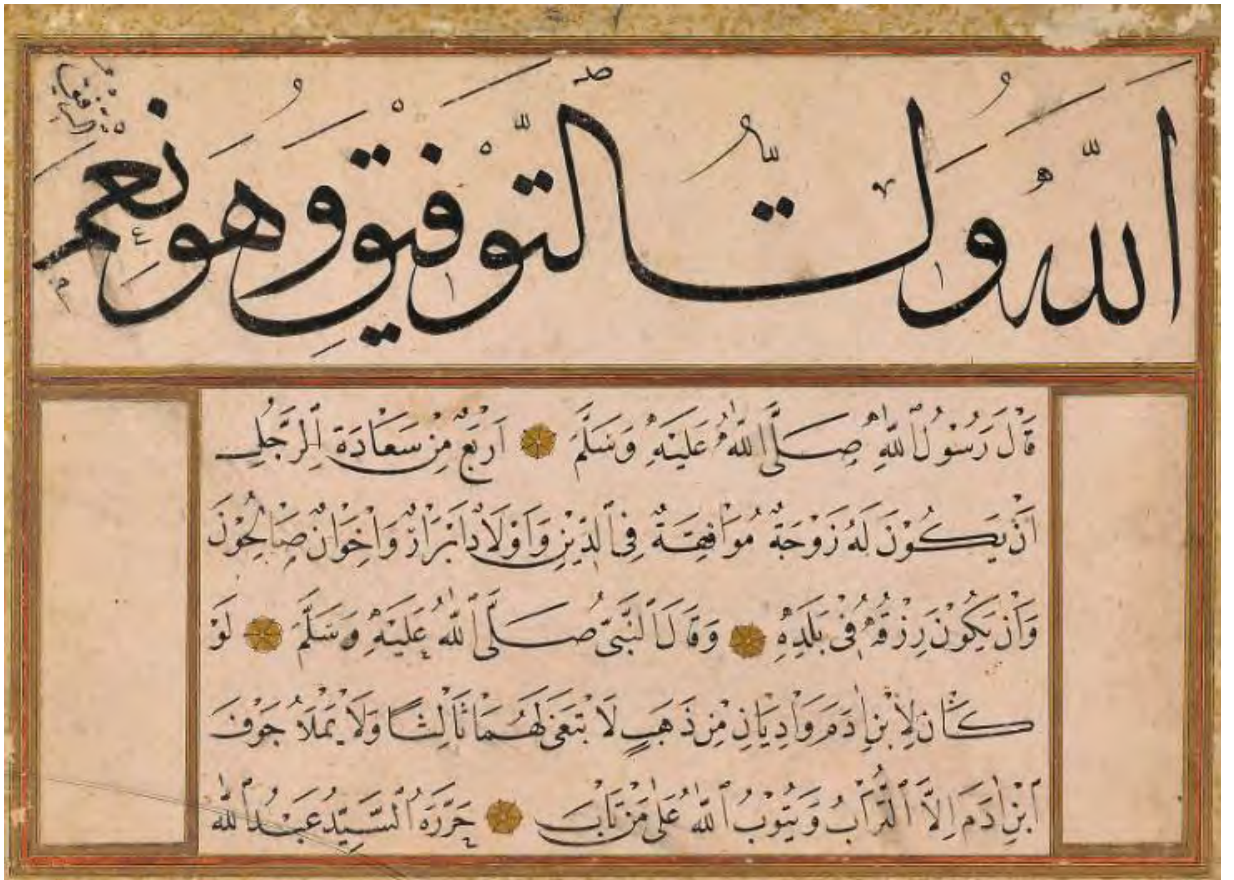 الله ولي التوفيق وهو نعم
قَالَ رَسُولُ اللّٰهِ صَلَّى اللّٰهُ عَلَيْهِ وَسَلَّمَ اَرْبَعٌ مِنْ سَعَادَةِ الرَّجُلِ
اَنْ يَكُونَ لَهُ زَوْجَةٌ مُوَافِقَةٌ فِى الدِّيْنِ وَاَوْلَادٌ اَبْرَارٌ وَاِخْوَانٌ صَالِحُوْنَ
وَاَنْ يَكُونَ رِزْقُهُ فِى بَلَدِهِ وَقَالَ النَّبِىُّ صَلَّى اللّٰهُ عَلَيْهِ وَسَلَّمَ لَوْ
كَانَ لِابْنِ اٰدَمَ وَادِيَانِ مِنْ ذَهَبٍ لَابْتَغٰى لَهُمَا ثَالِثًا وَلَا يَمْلَاُ جَوْفَ
ابْنِ اٰدَمَ اِلَّا التُّرَابُ وَيَتُوْبُ اللّٰهُ عَلٰى مَنْ تَابَ حَرَّرَهُ السَّيِّدُ عَبْدُ اللّٰه